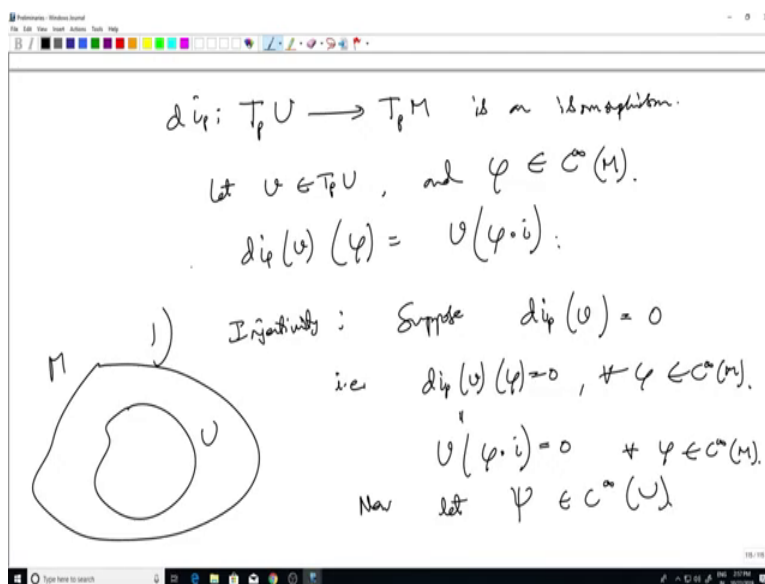 Preliminaries - Windows Journal
File Edit View Insert Actions Tools Help
B I
di_p : T_p U → T_p M is an isomorphism.
Let v ∈ T_p U, and φ ∈ C^∞(M).
di_p(v)(φ) = v(φ∘i).
Injectivity : Suppose di_p(v) = 0
i.e. di_p(v)(φ)=0, ∀ φ ∈ C^∞(M).
v(φ∘i)=0 ∀ φ ∈ C^∞(M).
Now let Ψ ∈ C^∞(U)
M
U
Type here to search
ENG 2:57 PM